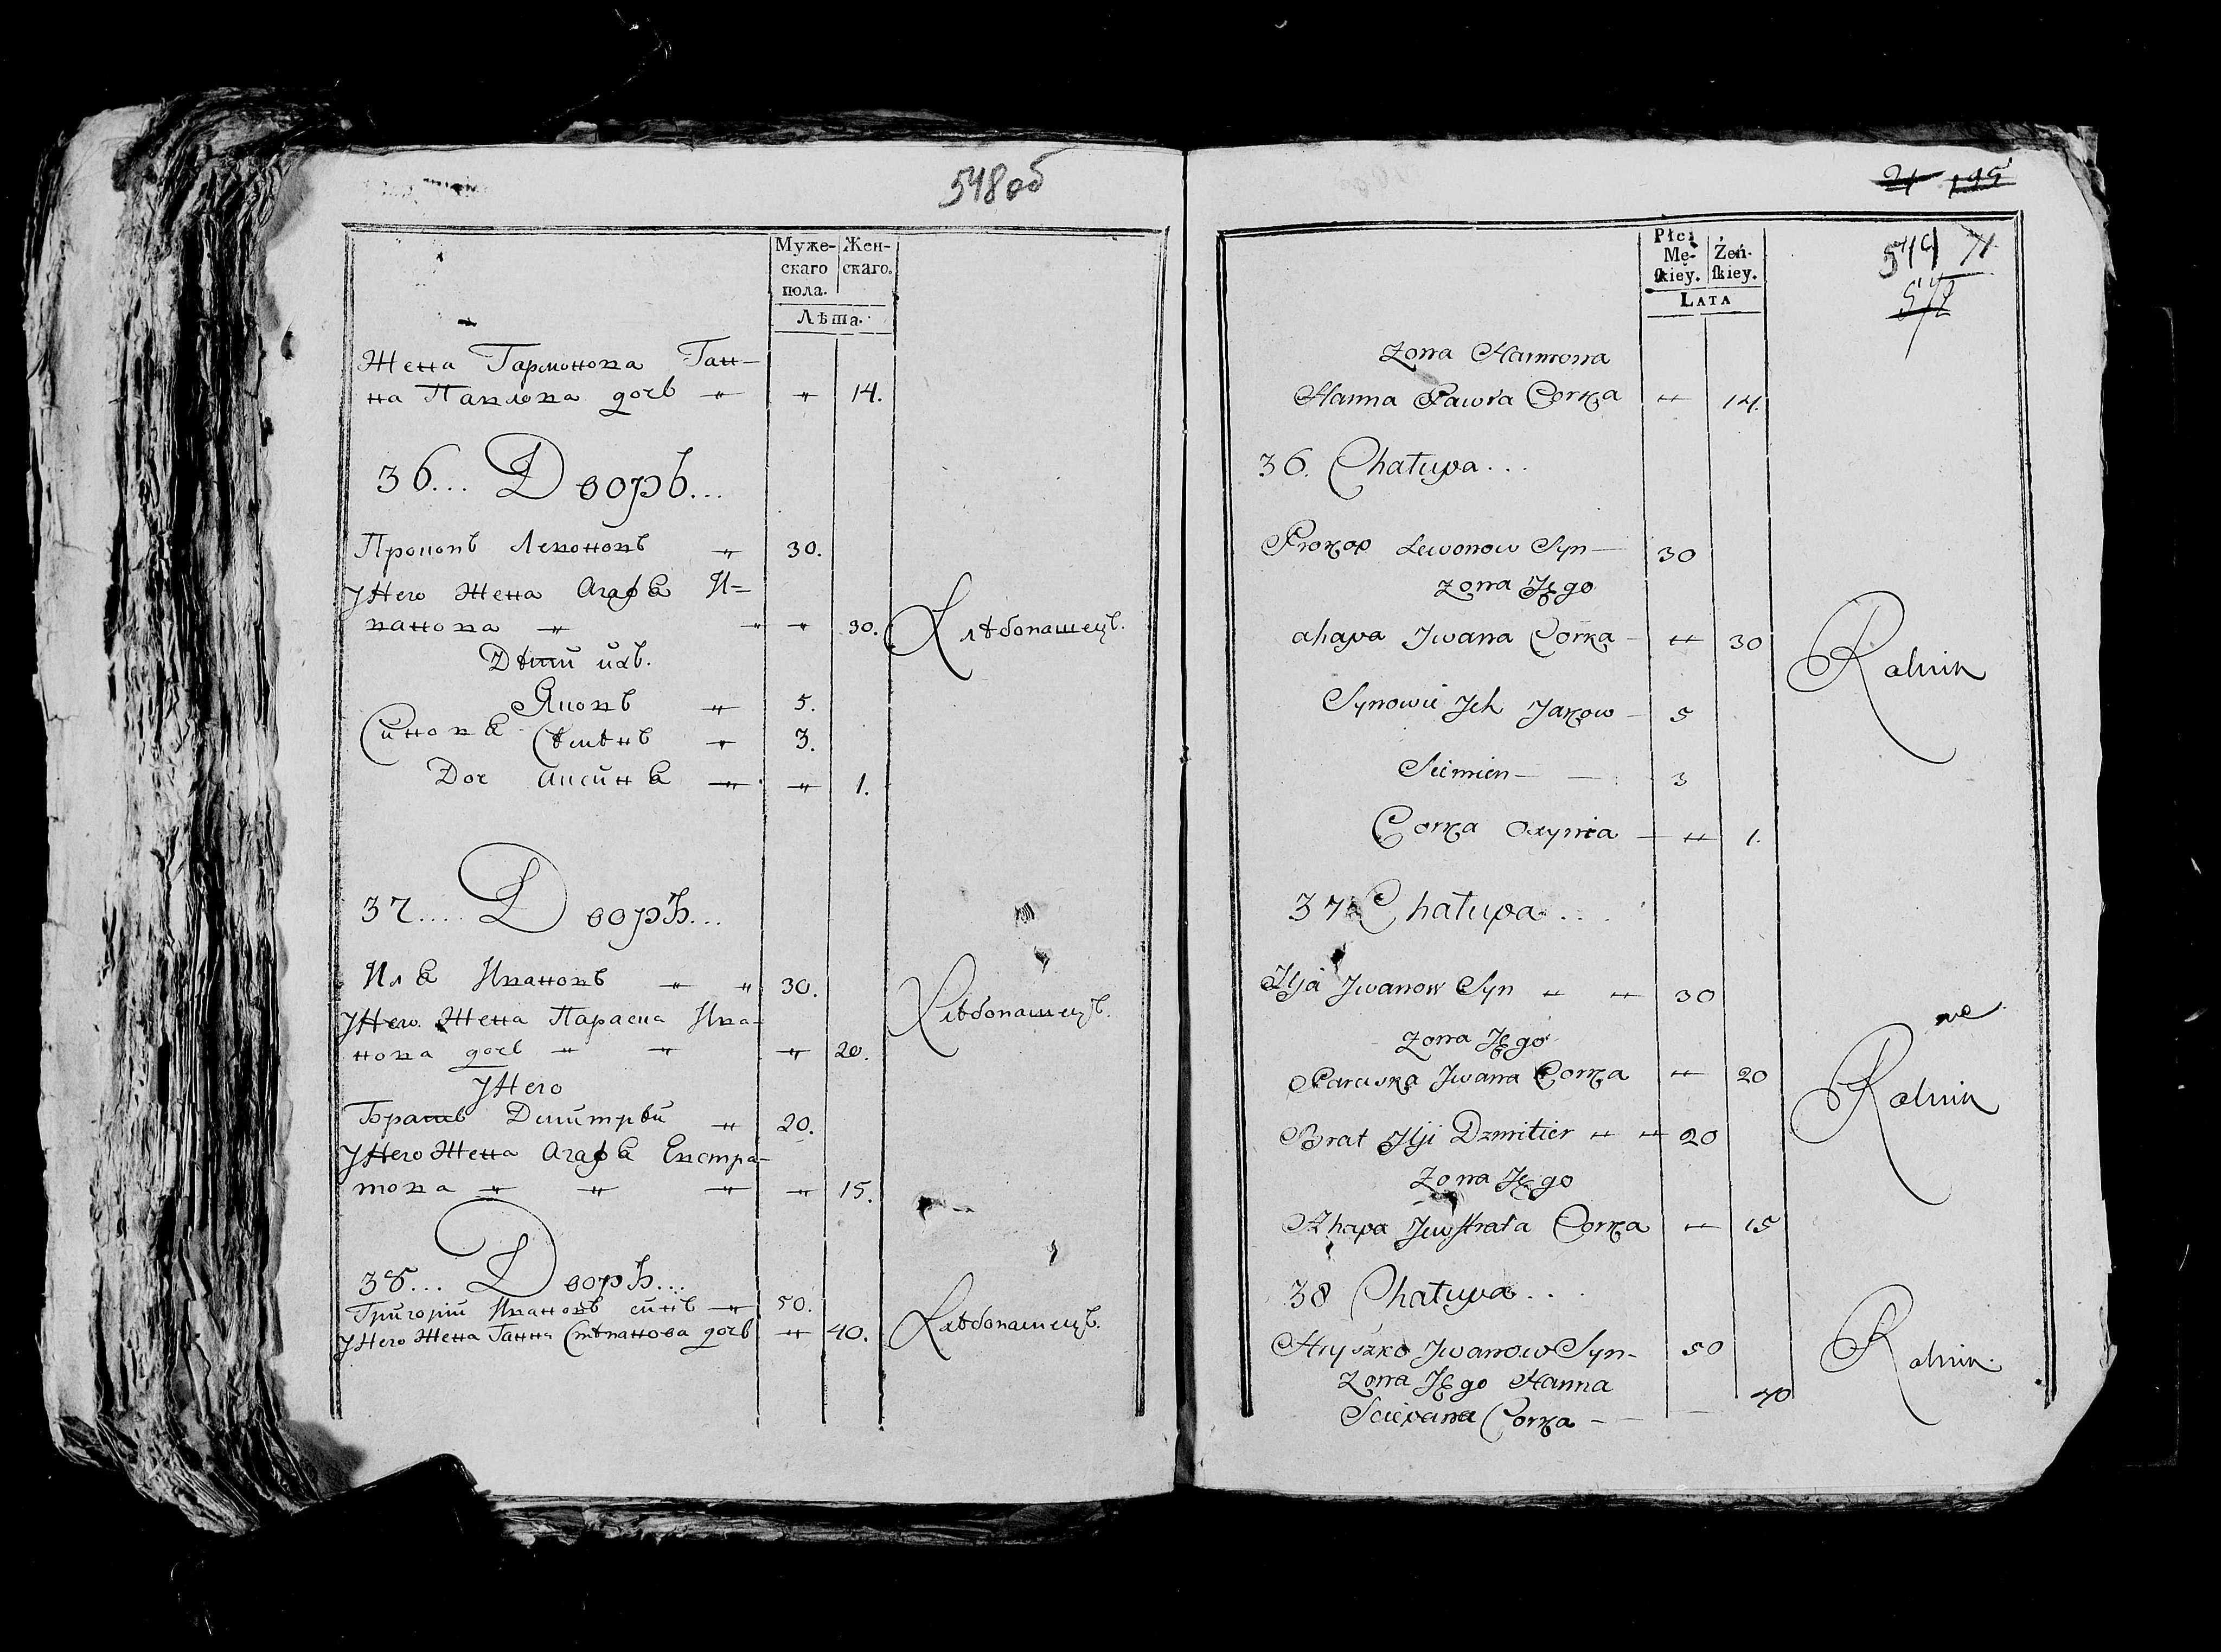 548 об
Муже- Жен-
скаго скаго.
пола.
Лѣта.
Жена Гармонова Ган-
на Павлова дочь " " 14.
36... Дворъ...
Прокопъ Левоновъ " 30.
У Него Жена Агафѣя И=
ванова " " " 30. Хлѣбопашецъ.
Дѣти ихъ.
Яковъ " 5.
Синовѣя Сѣмѣнъ " 3.
Доч Аксинѣя " " 1.
37.... Дворъ...
Илѣя Ивановъ " " 30. Хлѣбопашецъ.
У Него Жена Параска Ива-
нова дочь " " " 20.
У Него
Братъ Дмитрѣй " 20.
У Него Жена Агафѣя Евстра-
това " " " " 15.
38... Дворъ...
Григорій Ивановъ синъ " 50.
У Него Жена Ганна Стѣпанова дочь " 40. Хлѣбопашецъ.
21 195
Płci
Mę- Żeń-
skiey. skiey.
LATA
549 71
572
Zona Harmona
Hanna Pawła Corka " 14.
36. Chałupa...
Prokop Lewonow Syn 30
Zona Jego
ahapa Jwana Corka " 30 Rolnik
Synowie Jch Jakow 5
Siemien 3
Corka Oxynia " 1.
37 Chałupa...
Jlja Jwanow Syn " " 30
Zona Jego
Paraska Jwana Corka " 20 Rolnik
Brat Jlji Dzmitier " " 20
Zona Jego
Ahapa Jewstrata Corka " 15
38 Chałupa...
Hryszko Jwanow Syn 50 Rolnik.
Zona Jego Hanna 40
Sciepana Corka